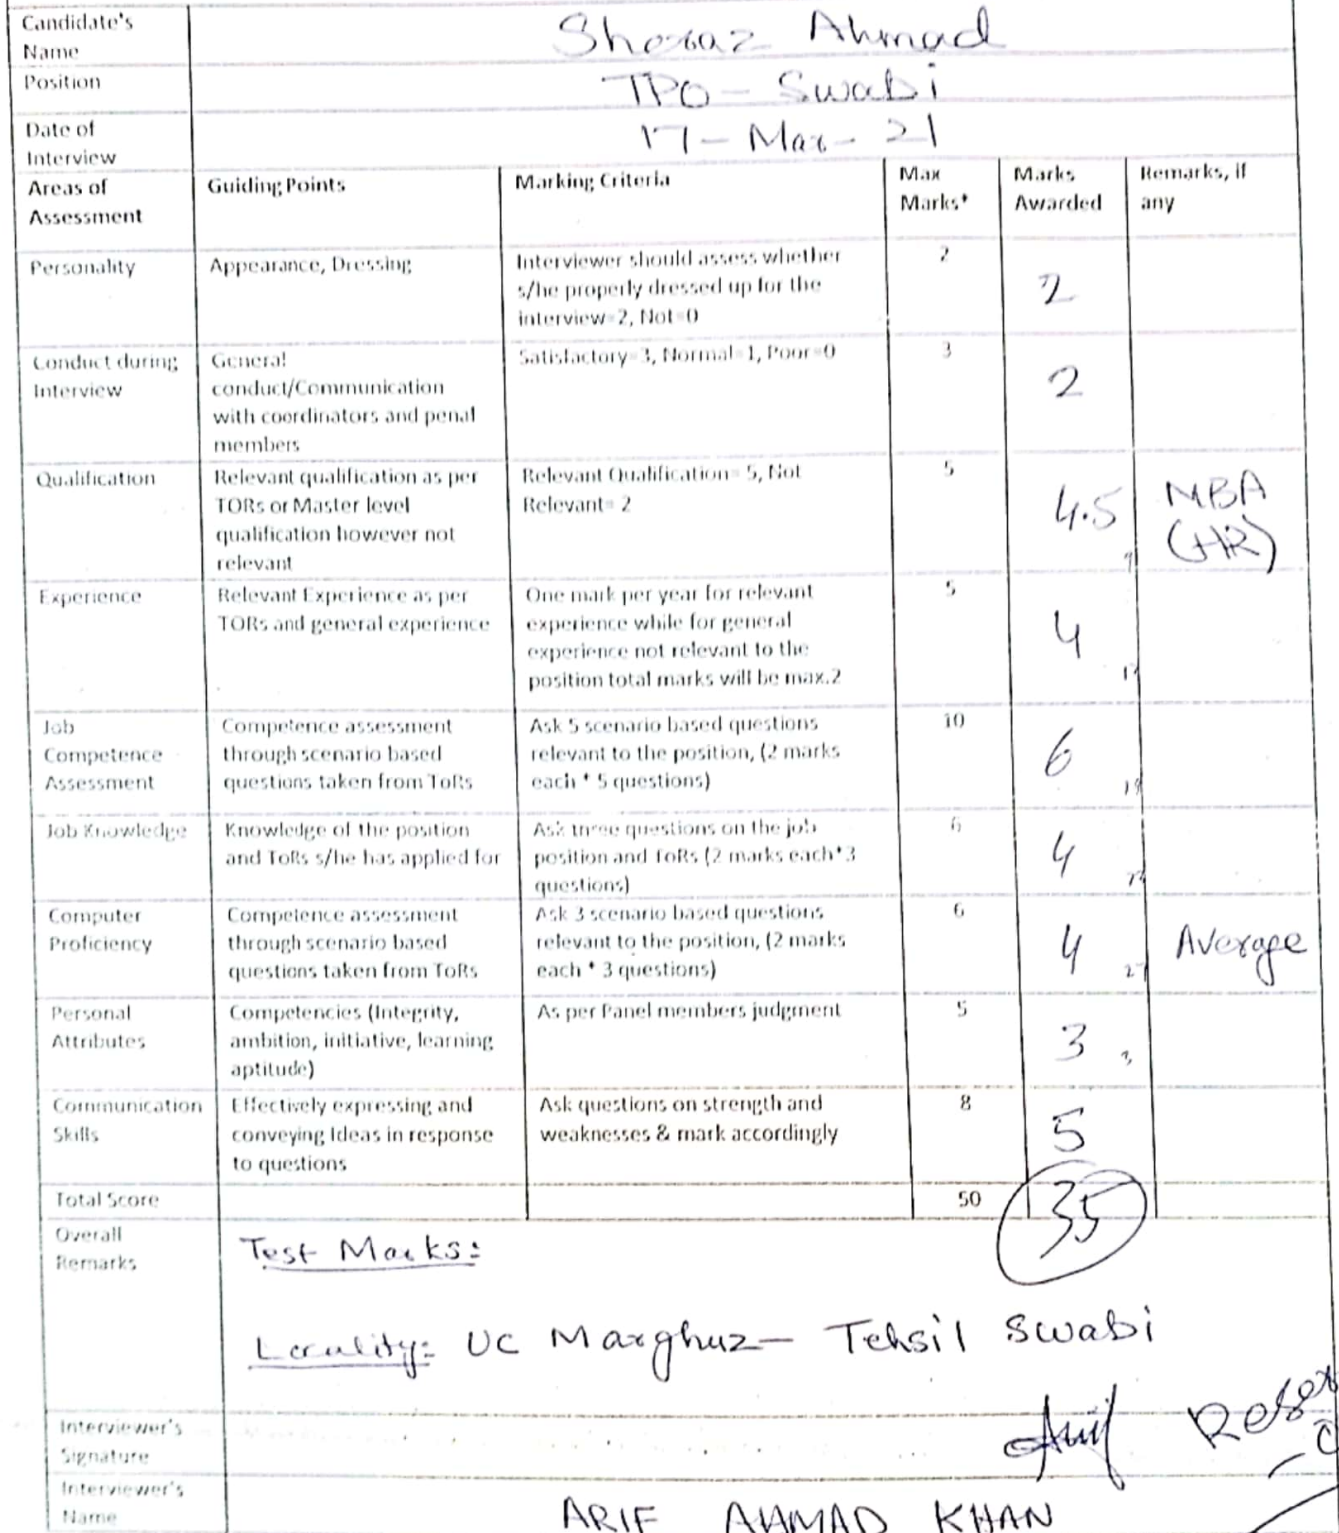 Candidate's
Name
Sheraz Ahmad
Position
TPO - Swabi
Date of
Interview
17 - Mar - 21
Areas of
Assessment
Guiding Points
Marking Criteria
Max
Marks*
Marks
Awarded
Remarks, if
any
Personality
Appearance, Dressing
Interviewer should assess whether
s/he properly dressed up for the
interview=2, Not=0
2
2
Conduct during
Interview
General
conduct/Communication
with coordinators and penal
members
Satisfactory=3, Normal=1, Poor=0
3
2
Qualification
Relevant qualification as per
TORs or Master level
qualification however not
relevant
Relevant Qualification= 5, Not
Relevant= 2
5
4.5
MBA
(HR)
Experience
Relevant Experience as per
TORs and general experience
One mark per year for relevant
experience while for general
experience not relevant to the
position total marks will be max.2
5
4
Job
Competence
Assessment
Competence assessment
through scenario based
questions taken from ToRs
Ask 5 scenario based questions
relevant to the position, (2 marks
each * 5 questions)
10
6
Job Knowledge
Knowledge of the position
and ToRs s/he has applied for
Ask three questions on the job
position and ToRs (2 marks each*3
questions)
6
4
Computer
Proficiency
Competence assessment
through scenario based
questions taken from ToRs
Ask 3 scenario based questions
relevant to the position, (2 marks
each * 3 questions)
6
4
27
Average
Personal
Attributes
Competencies (Integrity,
ambition, initiative, learning
aptitude)
As per Panel members judgment
5
3
Communication
Skills
Effectively expressing and
conveying Ideas in response
to questions
Ask questions on strength and
weaknesses & mark accordingly
8
5
Total Score
50
35
Overall
Remarks
Test Marks:
Locality: UC Marghuz - Tehsil Swabi
Interviewer's
Signature
Interviewer's
Name
ARIF AHMAD KHAN